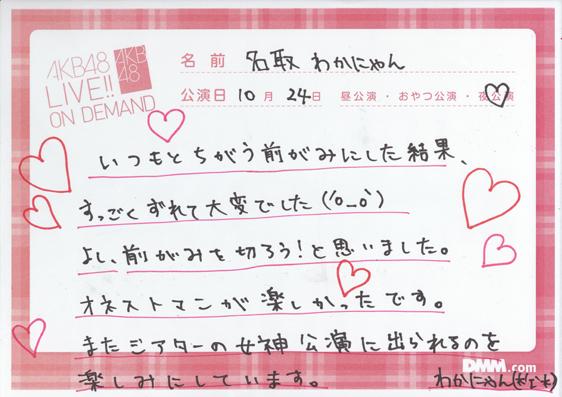 AKB48
LIVE!!
ON DEMAND
AKB
48
名前 名取 わかにゃん
公演日 10月 24日 昼公演・おやつ公演・夜公演
いつもとちがう前がみにした結果、
すっごくずれて大変でした(´o_o`)
よし、前がみを切ろう!と思いました。
オネストマンが楽しかったです。
またシアターの女神公演に出られるのを
楽しみにしています。
DMM.com